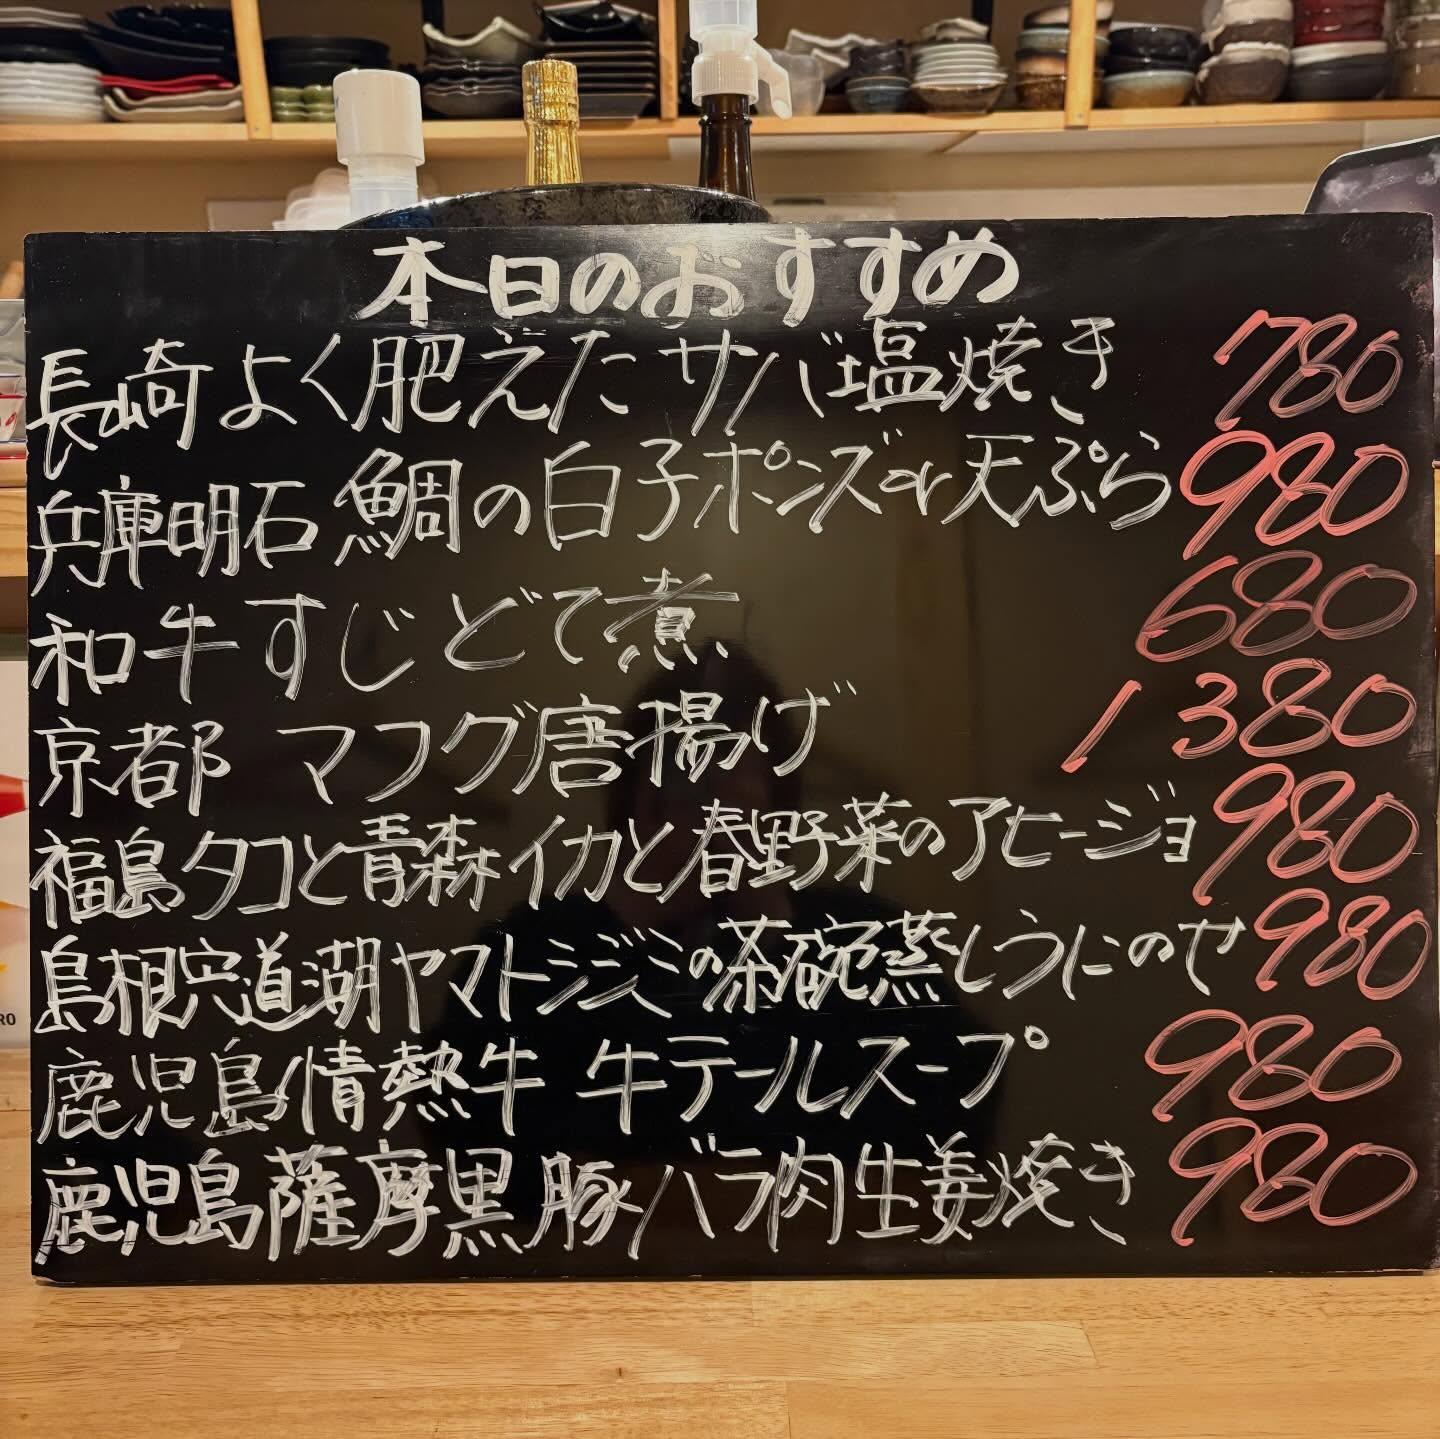 本日のおすすめ
長崎よく肥えたサバ塩焼き 780
兵庫明石 鯛の白子ポンズor天ぷら 980
和牛すじどて煮 680
京都 マフグ唐揚げ 1380
福島タコと青森イカと春野菜のアヒージョ 980
島根宍道湖ヤマトシジミの茶碗蒸しうにのせ 980
鹿児島情熱牛 牛テールスープ 980
鹿児島薩摩黒豚バラ肉生姜焼き 980
RO